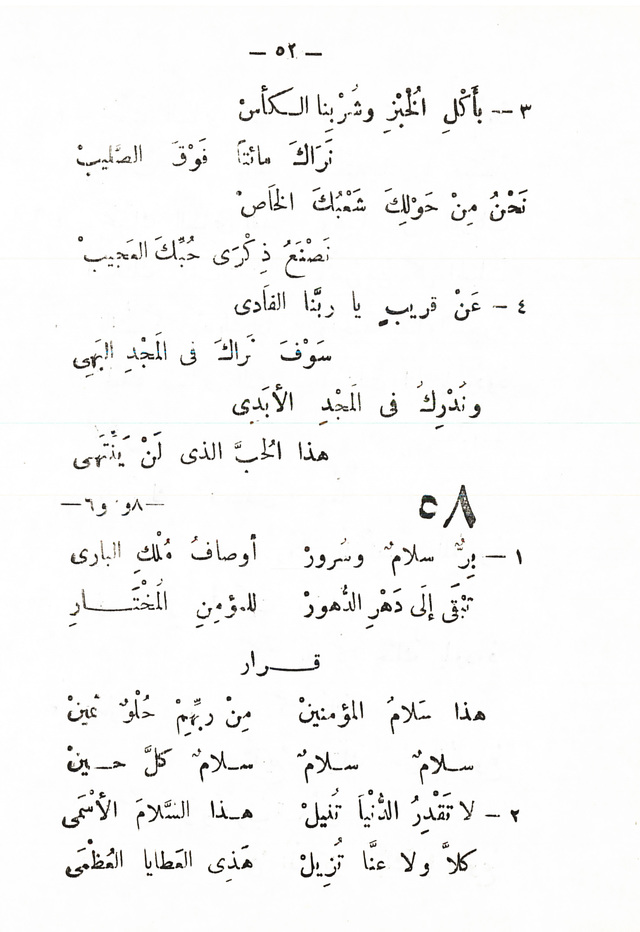 — ٥٢ —
٣ — بأَكْلِ الخُبْزِ وشُرْبِنا الكأسْ
نَرَاكَ مائتاً فَوْقَ الصَّليبْ
نَحْنُ مِنْ حَوْلِكَ شَعْبُكَ الخَاصْ
نَصْنَعُ ذِكْرَى حُبِّكَ العَجيبْ
٤ — عَنْ قريبٍ يا ربَّنا الفَادى
سَوْفَ نَراكَ فى المَجْدِ البَهِى
ونُدْرِكُ فى المَجْدِ الأبَدِى
هذا الحُبَّ الذى لَنْ يَنْتَهِى
٥٨
—٨و و٦—
١ — بِرٌّ سلامٌ وسُرورْ أوصافُ مُلْكِ البارى
تَبْقَى إلَى دَهْرِ الدُّهورْ للمؤمِنِ المُخْتَارِ
قرار
هذا سَلامُ المؤمنينْ مِنْ ربِّهِمْ حُلْوٌ ثمينْ
سلامٌ سلامٌ سلامٌ كلَّ حينْ
٢ — لا تَقْدِرُ الدُّنْيَا تُنيلْ هذا السَّلامَ الأسْمَى
كلاَّ ولا عنَّا تُزيلْ هَذِى العَطايا العُظْمَى